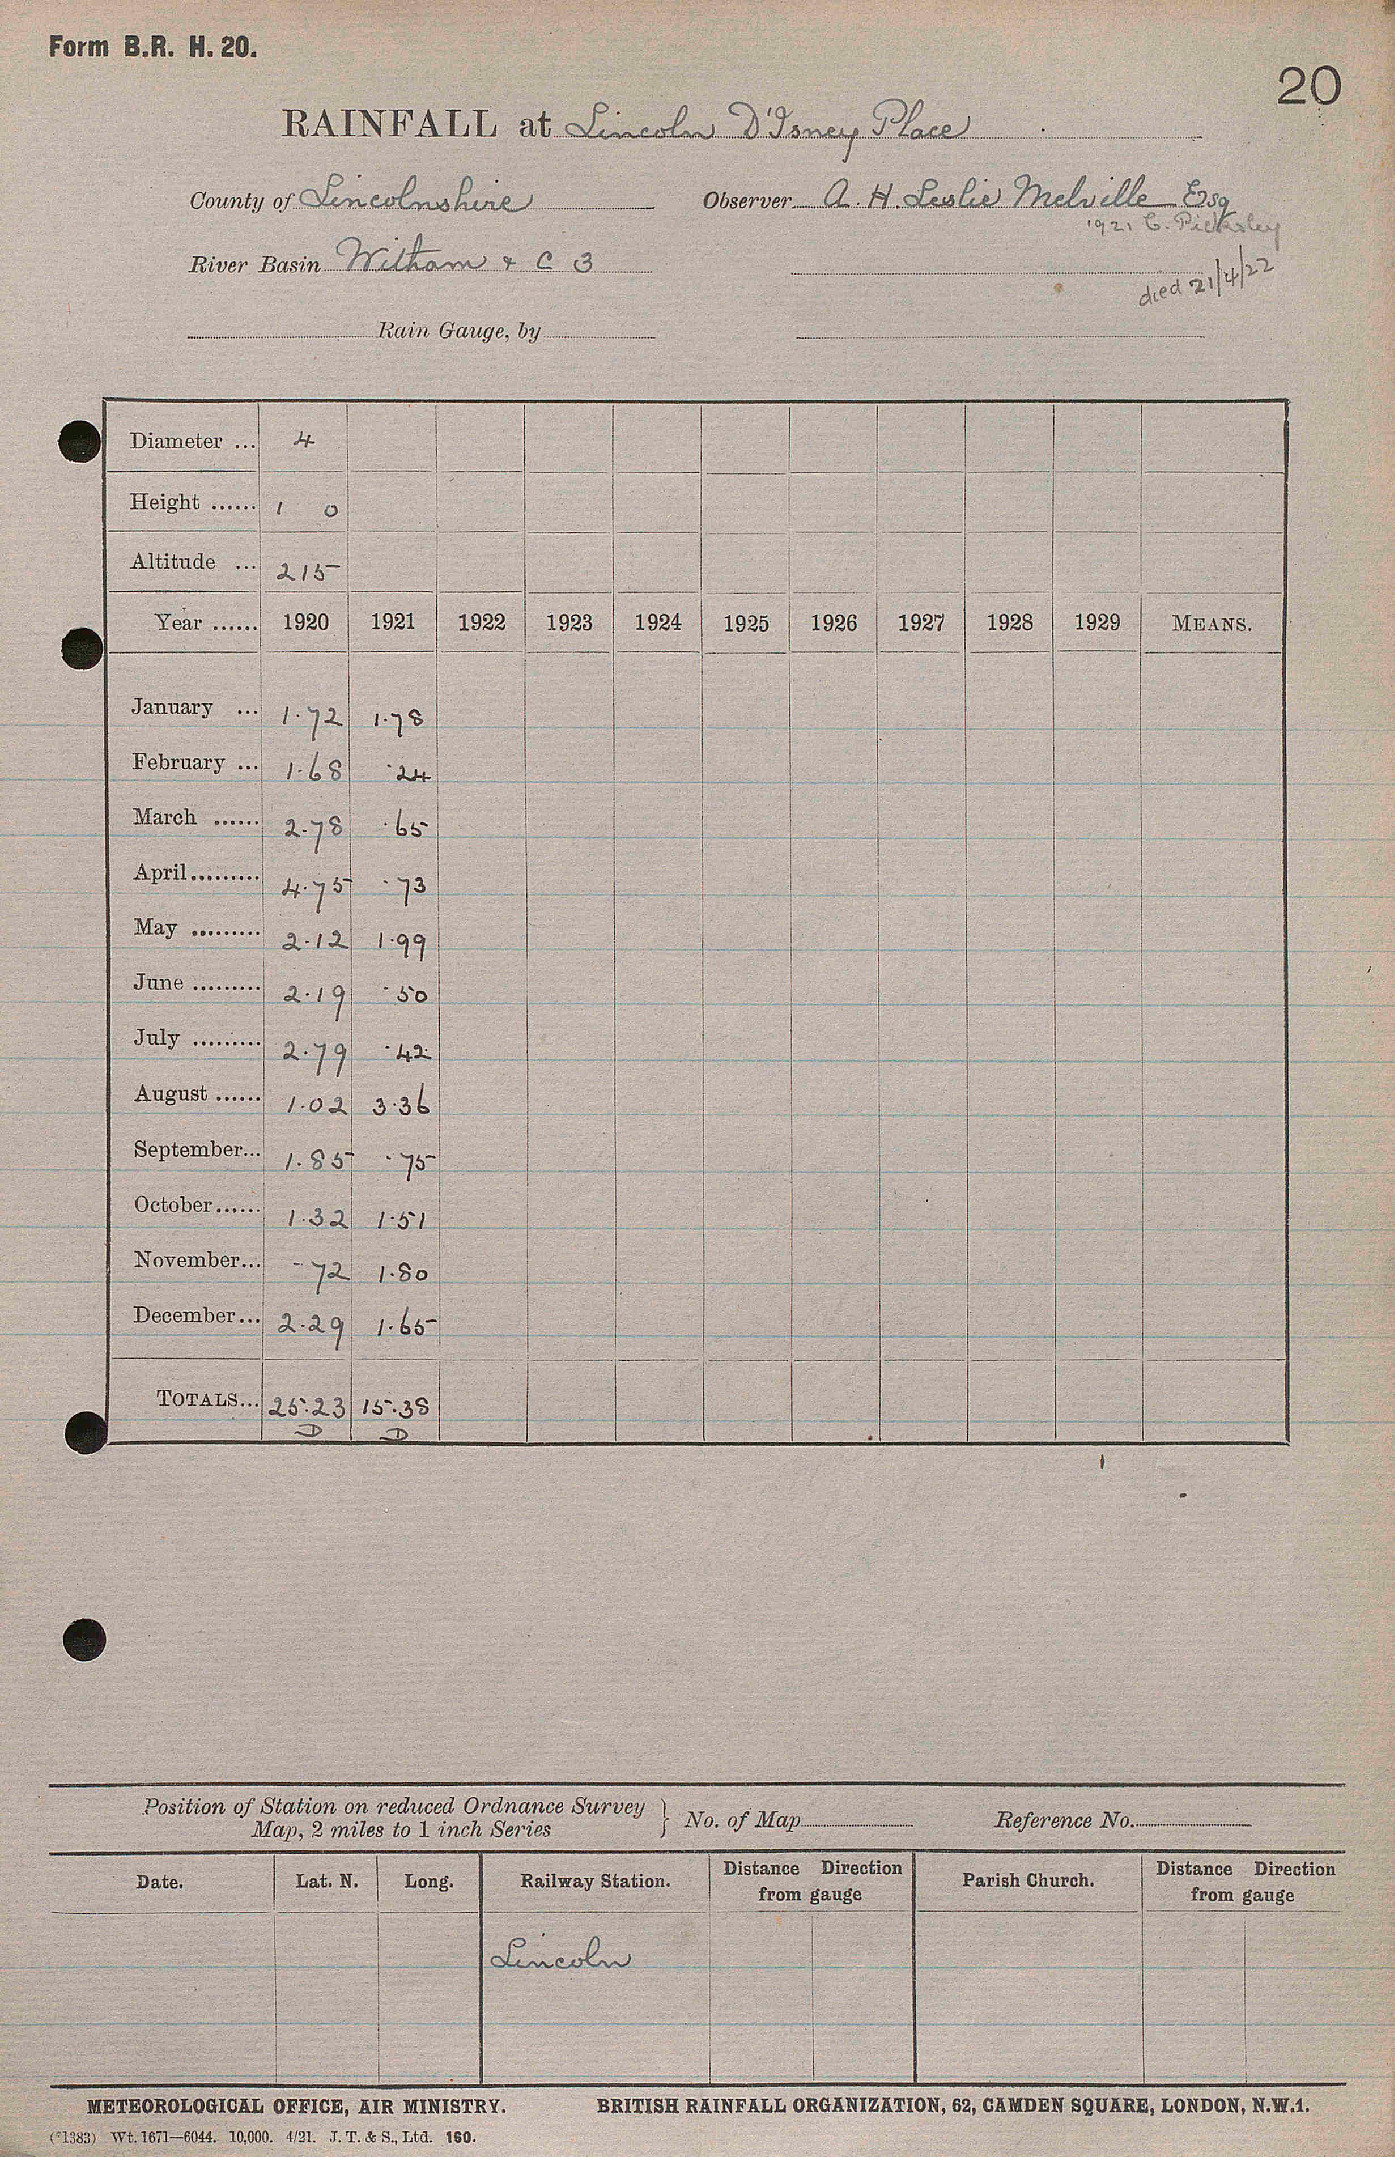 Form B.R. H. 20.
20
RAINFALL at Lincoln D'Isney Place
County of Lincolnshire Observer A. H. Leslie Melville Esq
1921 C. Picksley
River Basin Witham & C 3
died 21/4/22
Rain Gauge, by
Diameter ... 4
Height ...... 1 0
Altitude ... 215
Year ...... 1920 1921 1922 1923 1924 1925 1926 1927 1928 1929 MEANS.
January ... 1.72 1.78
February ... 1.68 .24
March ...... 2.78 .65
April ......... 4.75 .73
May ......... 2.12 1.99
June ......... 2.19 .50
July ......... 2.79 .42
August ...... 1.02 3.36
September... 1.85 .75
October ...... 1.32 1.51
November... .72 1.80
December... 2.29 1.65
TOTALS... 25.23 15.38
D D
Position of Station on reduced Ordnance Survey
Map, 2 miles to 1 inch Series } No. of Map Reference No.
Date. Lat. N. Long. Railway Station. Distance Direction from gauge Parish Church. Distance Direction from gauge
Lincoln
METEOROLOGICAL OFFICE, AIR MINISTRY. BRITISH RAINFALL ORGANIZATION, 62, CAMDEN SQUARE, LONDON, N.W.1.
(*1383) Wt. 1671—6044. 10,000. 4/21. J. T. & S., Ltd. 160.